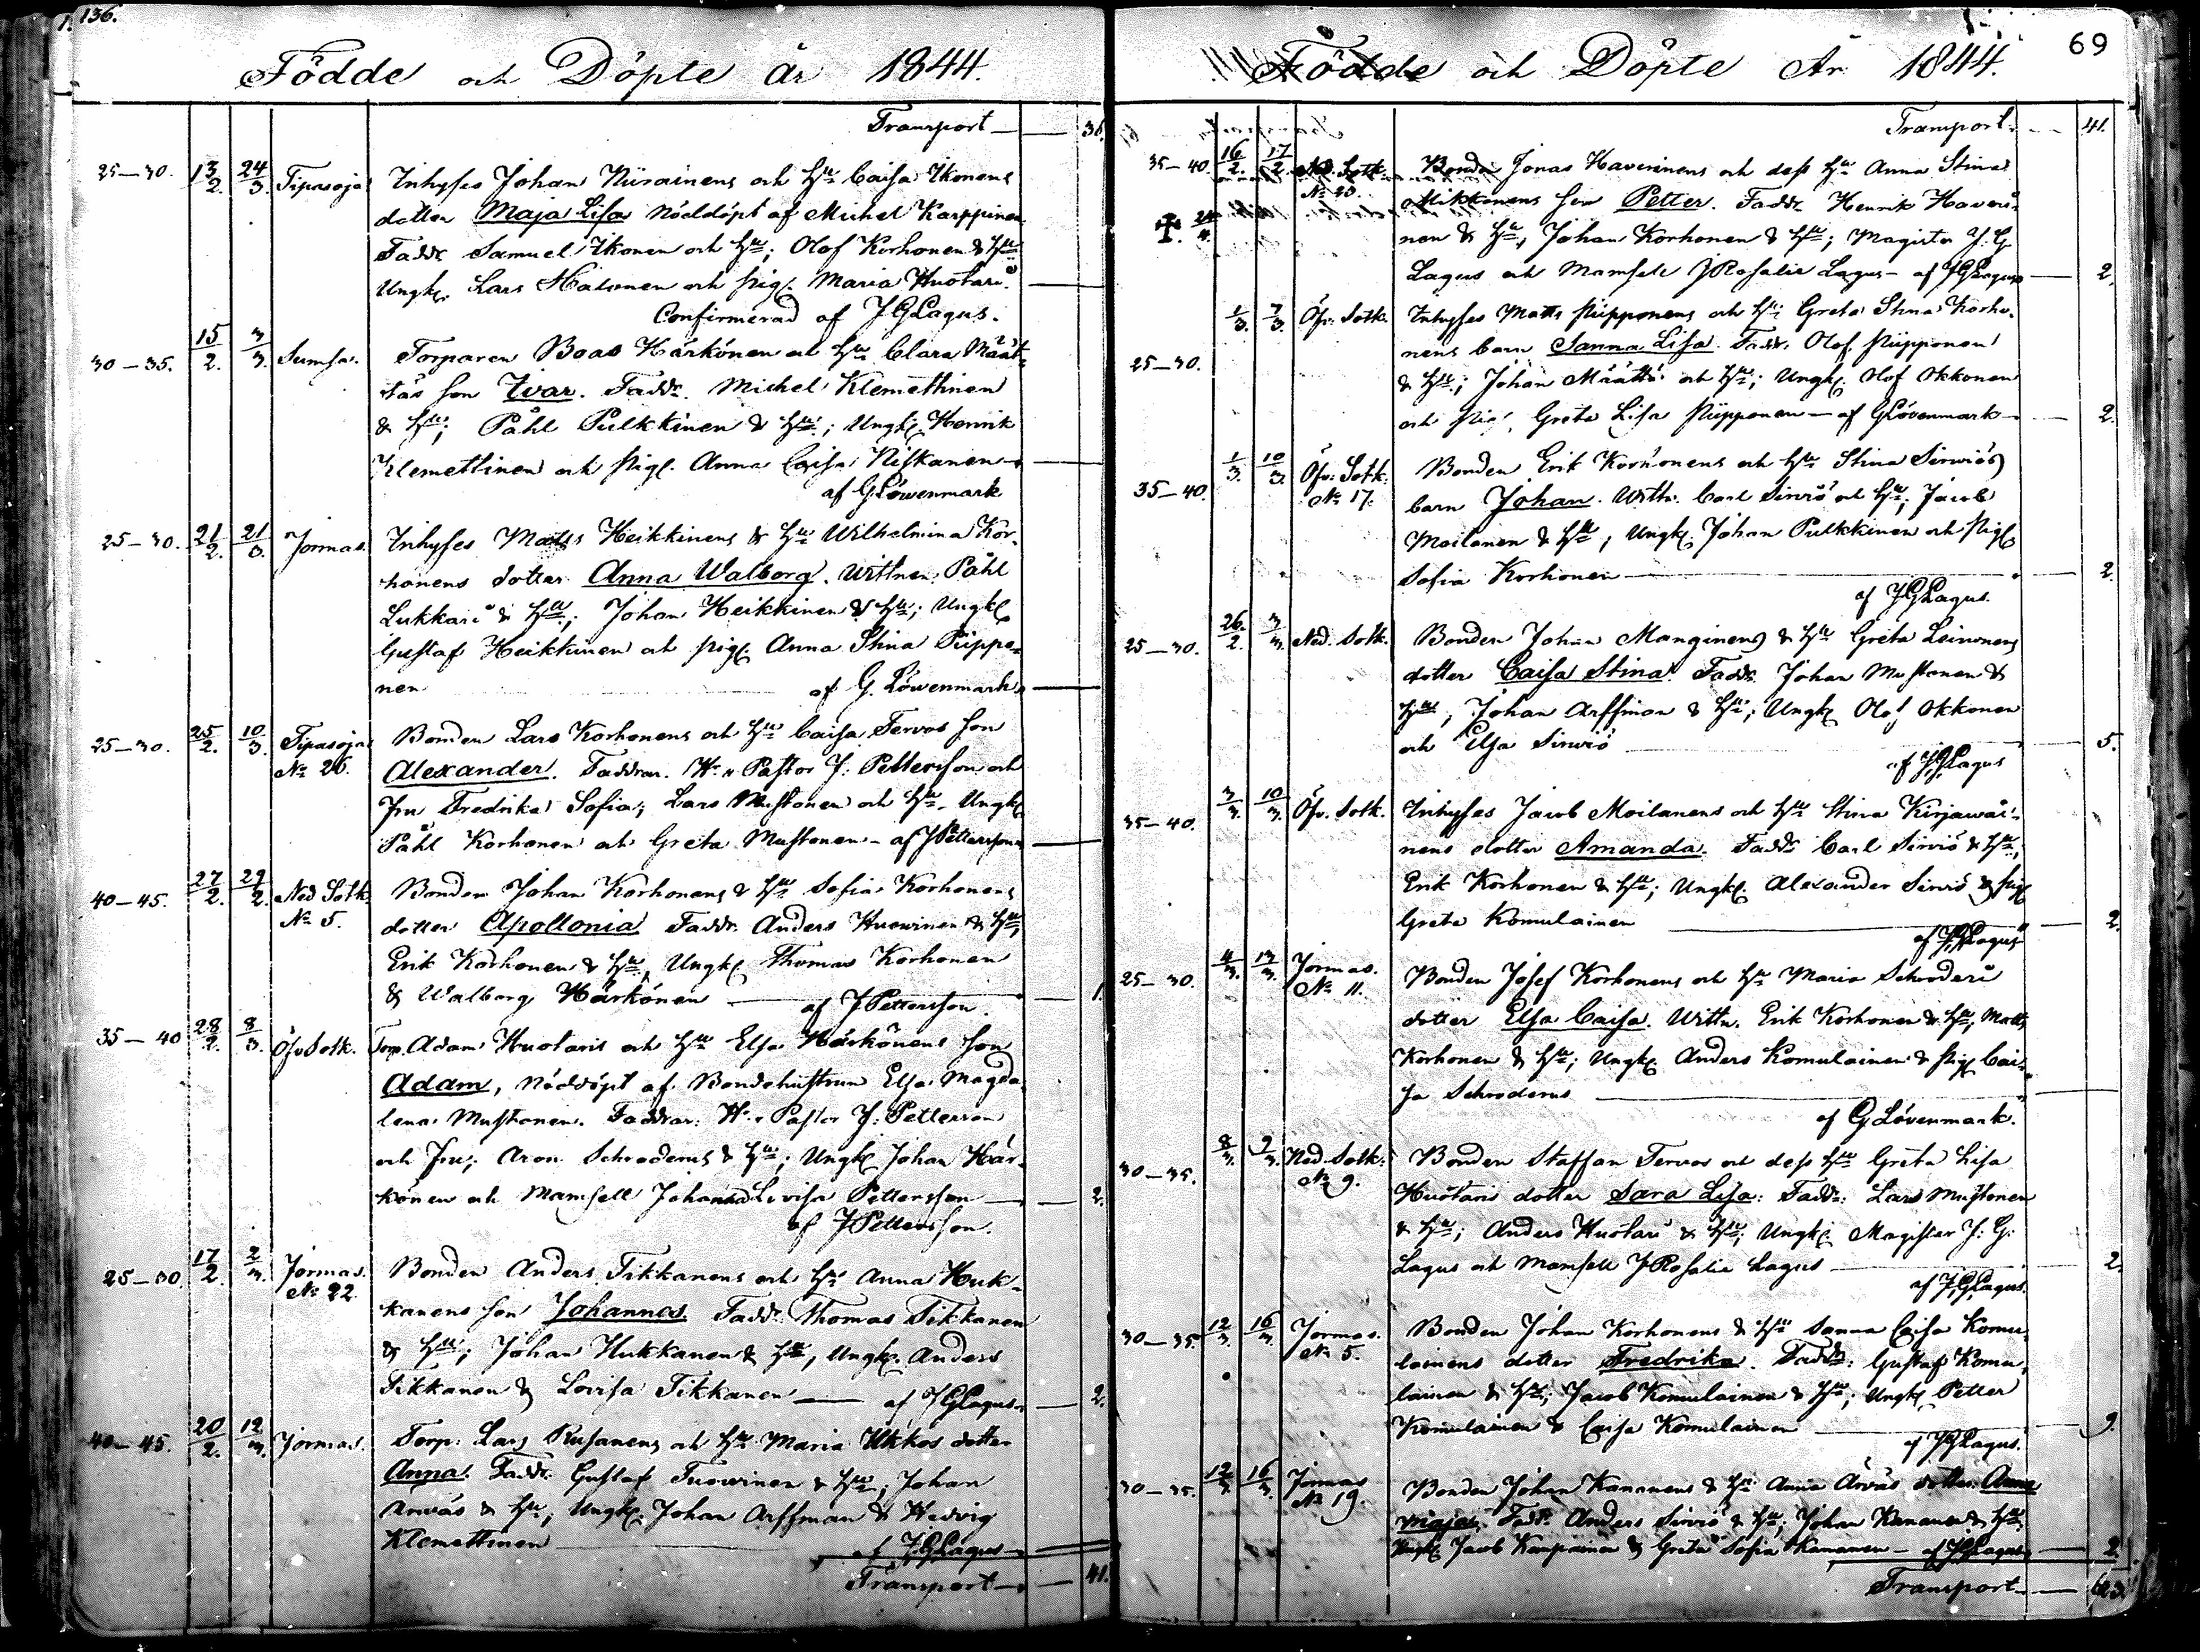 136.
Födde och Döpte år 1844.
Transport — 36.
25–30. 13/2. 24/3. Tipasoja Inhyses Johan Niirainens och Hu Caisa Ikonens
dotter Maja Lisa Nöddöpt af Michel Karppinen
Faddr. Samuel Ikonen och Hu; Olof Korhonen & Hu
Ungk. Lars Halonen och pig. Maria Huotari.
Confirmerad af JGLagus.
30–35. 15/2. 3/3. Sumsa. Torparen Boas Härkönen och Hu Clara Määt-
täs son Ivar. Faddr. Michel Klemettinen
& Hu; Påhl Pulkkinen & Hu; Ungk. Henrik
Klemettinen och pig. Anna Caisa Niskanen
af GLöwenmark
25–30. 21/2. 21/3. Jormas. Inhyses Matts Heikkinens & Hu Wilhelmina Kor-
honens dotter Anna Walborg. Wittnen Påhl
Lukkari & Hu; Johan Heikkinen & Hu; Ungk.
Gustaf Heikkinen och pig. Anna Stina Piippo-
nen af G. Löwenmark
25–30. 25/2. 10/3. Tipasoja Bonden Lars Korhonens och Hu Caisa Tervos son
No 26. Alexander. Faddrar. Hr Pastor J. Pettersson och
Fru Fredrika Sofia; Lars Mustonen och Hu. Ungk.
Påhl Korhonen och Greta Mustonen – af JPettersson
40–45. 27/2. 29/2. Ned Sotk. Bonden Johan Korhonens & Hu Sofia Korhonens
No 5. dotter Apollonia Faddr. Anders Huovinen & Hu,
Erik Korhonen & Hu, Ungk. Thomas Korhonen
& Walborg Härkönen — 1.
af JPettersson.
35–40 28/2. 8/3. Öfv Sotk. Torp. Adam Huotaris och Hu Elsa Härkönens son
Adam, Nöddöpt af Bondehustrun Elsa Magda-
lena Mustonen. Faddrar: Hr Pastor J. Petterson
och Fru; Aron Schroderus & Hu; Ungk Johan Här-
könen och Mamsell Johanna Lovisa Pettersson — 2.
af JPettersson.
25–30. 17/2. 2/3. Jormas. Bonden Anders Tikkanens och Hu Anna Huk-
No 22. kanens son Johannes. Faddr. Thomas Tikkanen
& Hu; Johan Hukkanen & Hu, Ungk. Anders
Tikkanen & Lovisa Tikkanen — af JGLagus — 2.
40–45. 20/2. 12/3. Jormas. Torp. Lars Rusanens och Hu Maria Ukkos dotter
Anna. Faddr. Gustaf Tuovinen & Hu; Johan
Arwäs & Hu, Ungk. Johan Arffman & Hedvig
Klemettinen af JGLagus
Transport — 41.
69
Födde och Döpte År 1844.
Transport. — 41.
35–40. 16/2. 17/2. Ned. Sotk. Bonden Jonas Haverinens och dess Hu Anna Stina
No 20. Mikkonens son Petter. Faddr. Henrik Haveri-
† 24/4. nen & Hu, Johan Korhonen & Hu; Magister J. G.
Lagus och Mamsell JRosalie Lagus – af JGLagus — 2.
1/3. 7/3. Öfv. Sotk. Inhyses Matts Piipponens och Hu Greta Stina Korho-
25–30. nens barn Sanna Lisa. Faddr. Olof Piipponen
& Hu; Johan Määttä och Hu; Ungk. Olof Okkonen
och Pig. Greta Lisa Piipponen — af GLövenmark — 2.
35–40. 1/3. 10/3. Öfv. Sotk. Bonden Erik Korhonens och Hu Stina Sirviös
No 17. barn Johan. Wittn. Carl Sirviö och Hu; Jacob
Moilanen & Hu, Ungk. Johan Pulkkinen och Pig.
Sofia Korhonen — 2.
af JGLagus.
25–30. 26/2. 3/3. Ned. Sotk. Bonden Johan Manginens & Hu Greta Leinonens
dotter Caisa Stina. Faddr. Johan Mustonen &
Hu, Johan Arffman & Hu; Ungk Olof Okkonen
och Elsa Sirviö — 5.
af JGLagus
35–40. 3/3. 10/3. Öfv. Sotk. Inhyses Jacob Moilanens och Hu Stina Kirjawai-
nens dotter Amanda. Faddr Carl Sirviö & Hu;
Erik Korhonen & Hu; Ungk. Alexander Sirviö & pig
Greta Komulainen — 2.
af JGLagus
25–30. 4/3. 13/3. Jormas. Bonden Josef Korhonens och Hu Maria Schroderi
No 11. dotter Elsa Caisa. Wittn. Erik Korhonen & Hu, Matts
Korhonen & Hu; Ungk. Anders Komulainen & pig Cai-
sa Schroderus
af GLövenmark.
30–35. 8/3. 9/3. Ned. Sotk. Bonden Staffan Tervos och dess Hu Greta Lisa
No 9. Huotaris dotter Sara Lisa. Faddr. Lars Mustonen
& Hu; Anders Huotari & Hu; Ungk. Magister J. G.
Lagus och Mamsell JRosalie Lagus — 2.
af JGLagus.
30–35. 12/3. 16/3. Jormas. Bonden Johan Korhonens & Hu Sanna Caisa Komu-
No 5. lainens dotter Fredrika. Faddr: Gustaf Komu-
lainen & Hu; Jacob Komulainen & Hu; Ungk. Petter
Komulainen & Caisa Komulainen — 9.
af JGLagus.
30–35. 12/3. 16/3. Jormas Bonden Johan Kananens & Hu Anna Arväs dotter Anna
No 19. Maja. Faddr. Anders Sirviö & Hu; Johan Kananen & Hu
Ungk Jacob & Greta Sofia Kananen – af JGLagus — 2.
Transport — 63.